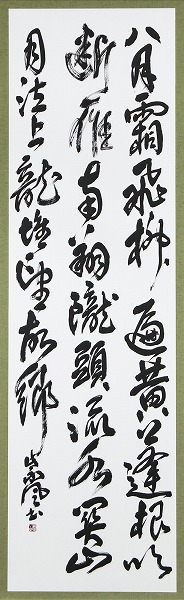 八月霜飛柳遍黄蓬根吹
断雁南翔隴頭流水関山
月泣上龍堆望故郷